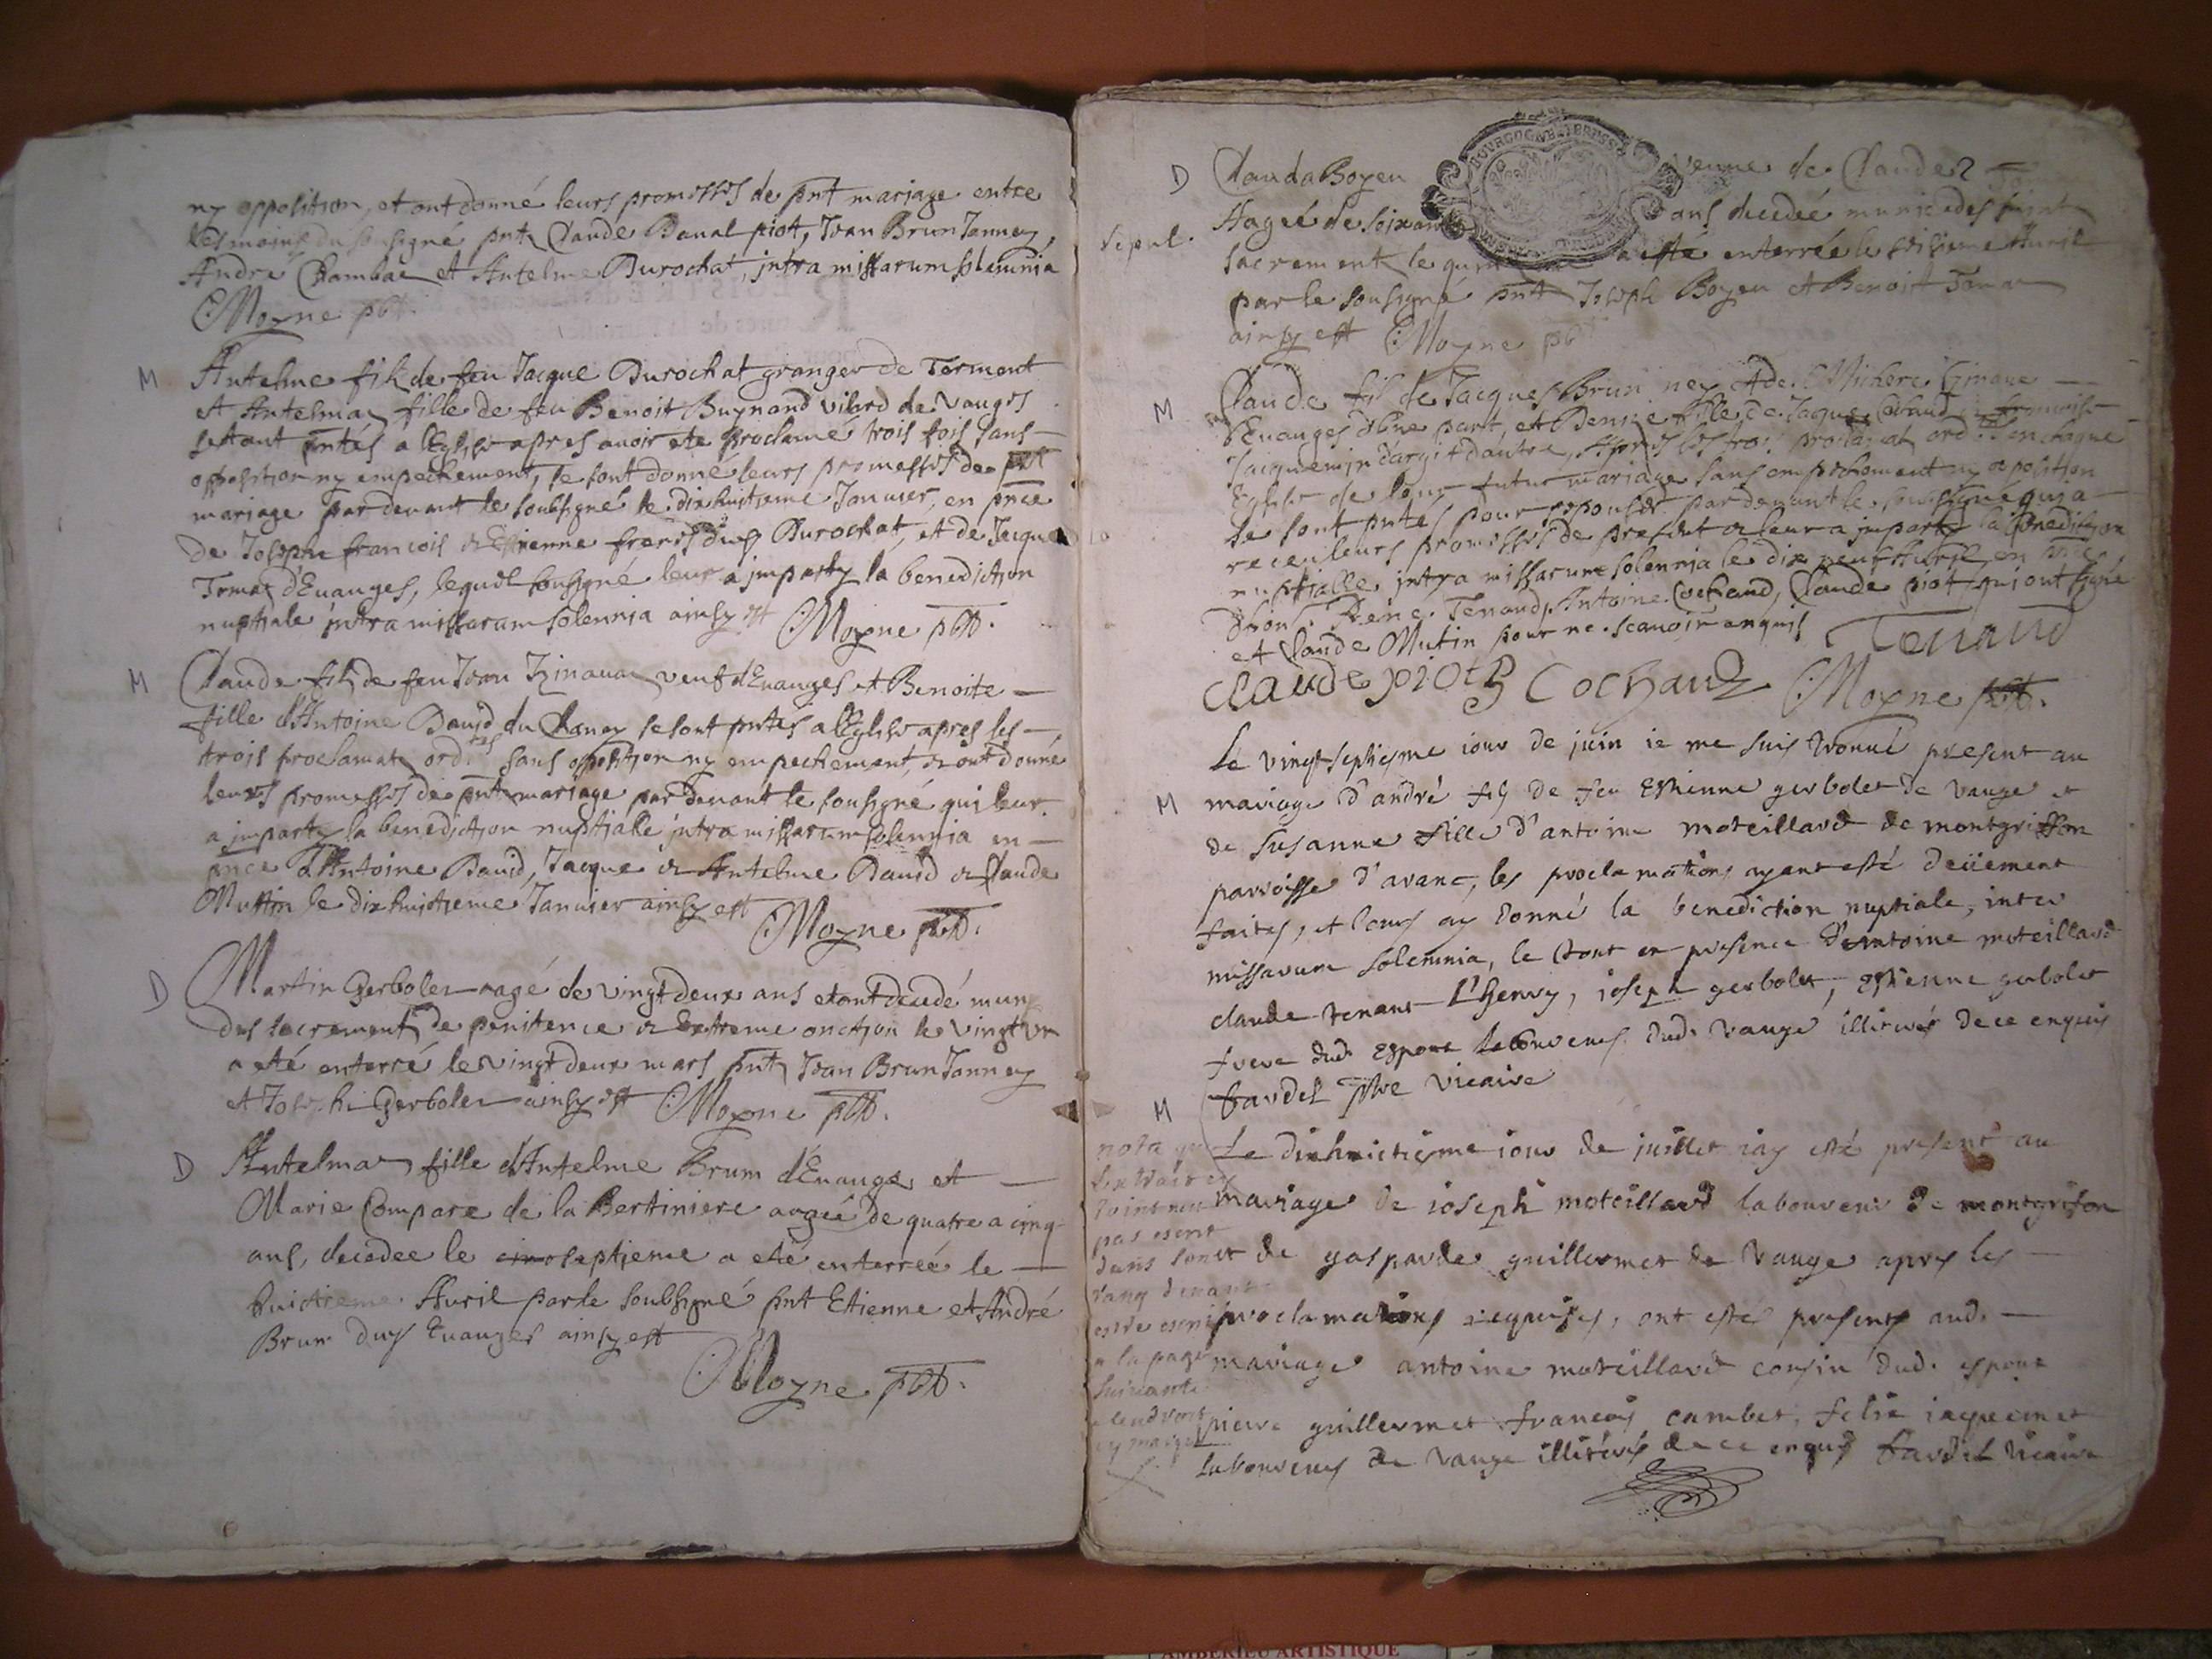 ny opposition, et ont donné leurs promesses de pnt mariage entre
les mains du sousigné pnts Claude Banal piot, Jean Brun Janney,
André Chambae et Antelme Durochat, jntra missarum solemnia
Moyne pbt.
M
Antelme fils de feu Jacque Durochat granger de Termont
et Antelma fille de feu Benoit Buynand vilard de Vauges
sestant pntés a l'Eglise apres auoir ete proclamé trois fois sans
opposition ny empechement, se sont donné leurs promesses de pnt
mariage par deuant le soubsigné le dix huitieme Januier, en pnce
de Joseph francois & Etienne freres dud Durochat, et de Jacque
d'Euanges, lequel sousigné leur a jmparty la benediction
nuptiale jntra missarum solennia ainsy est Moyne pbt.
M
Claude fils de feu Jean veuf d'Euanges et Benoite
fille d'Antoine Dauid du Chaney se sont pntés a l'Eglise apres les
trois proclamat ord.res sans opposition ny empechement, & ont donné
leurs promesses de pnt mariage par deuant le sousigné qui leur
a jmparty la benediction nuptiale jntra missarum solennia en
pnce d'Antoine Dauid, Jacque & Antelme Dauid & Claude
Muttin le dix huictieme Januier ainsy est
Moyne pbt.
D
Martin Gerbolet agé de vingt deux ans etant decedé muny
des sacrements de penitence & Extreme onction le vingt vn
a eté enterré le vingt deux mars pnts Jean Brun Janney
et Joseph Gerbolet ainsy est Moyne pbt.
D
Antelma fille d'Antelme Brum d'Euanges et
Marie Compare de la Bertiniere angée de quatre a cinq
ans, decedee le septjeme a eté enterrée le
huictieme Auril par le soubsigné pnt Etienne et André
Brun dud Euanges ainsy est
Moyne pbt.
D
Clauda Boyeu veuue de Claude
Sepul.
Aagée de soixan ans decedeé munie des saints
sacrements le quin a esté enterrée le seizieme Auril
par le sousigné pnts Joseph Boyeu et Benoist
ainsy est Moyne pbt
M
Claude fils de Jacques Brun ney et de
d'Euanges d'une part, et Denise fille de Jaque
Jacquemin d'arg et d'autre, Apres les trois proclamat ord.res en chaque
Eglise de leur futur mariage sans empechement ny oposition
se sont pntés pour espouser par deuant le soussigné qui a
receu leurs promesses de present & leur a jmparty la Benediction
nuptialle jntra missarum solennia le dix neuf Auril en pnce
d'hon.s Rene Tenand, Antoine Cochand, Claude piot qui ont signé
et Claude Mutin pour ne scauoir enquis Tenand
Claude piot Cochand Moyne pbt.
M
Le vingt septiesme iour de juin ie me suis trouué present au
mariage d'andré fils de feu Estienne gerbolet de vauge et
de Susanne fille d'antoine moteillard de montgriffon
parroisse d'aranc, les proclamations ayant esté deüement
faites, et leurs ay donné la benediction nuptiale, inter
missarum solemnia, le tout en presence d'antoine moteillard
claude tenant L'henry, ioseph gerbolet, estienne gerbolet
frere dud. Espoux laboureurs dud. vauge illiterés de ce enquis
fardel pbre vicaire
M
nota que
pas escrit
dans son
rang deuant
estre escrit
a la page
suiuante
Le dixhuictiesme iour de juillet iay esté present au
mariage de ioseph moteillard laboureur de montgrifon
et de gasparde guillermet de vauge apres les
proclamations requises, ont esté presents aud.
mariage antoine moteillard cousin dud. espoux
pierre guillermet francois cambet, felix iaquemet
laboureurs de vauge illiterés de ce enquis fardel vicaire
AMBERIEU ARTISTIQUE